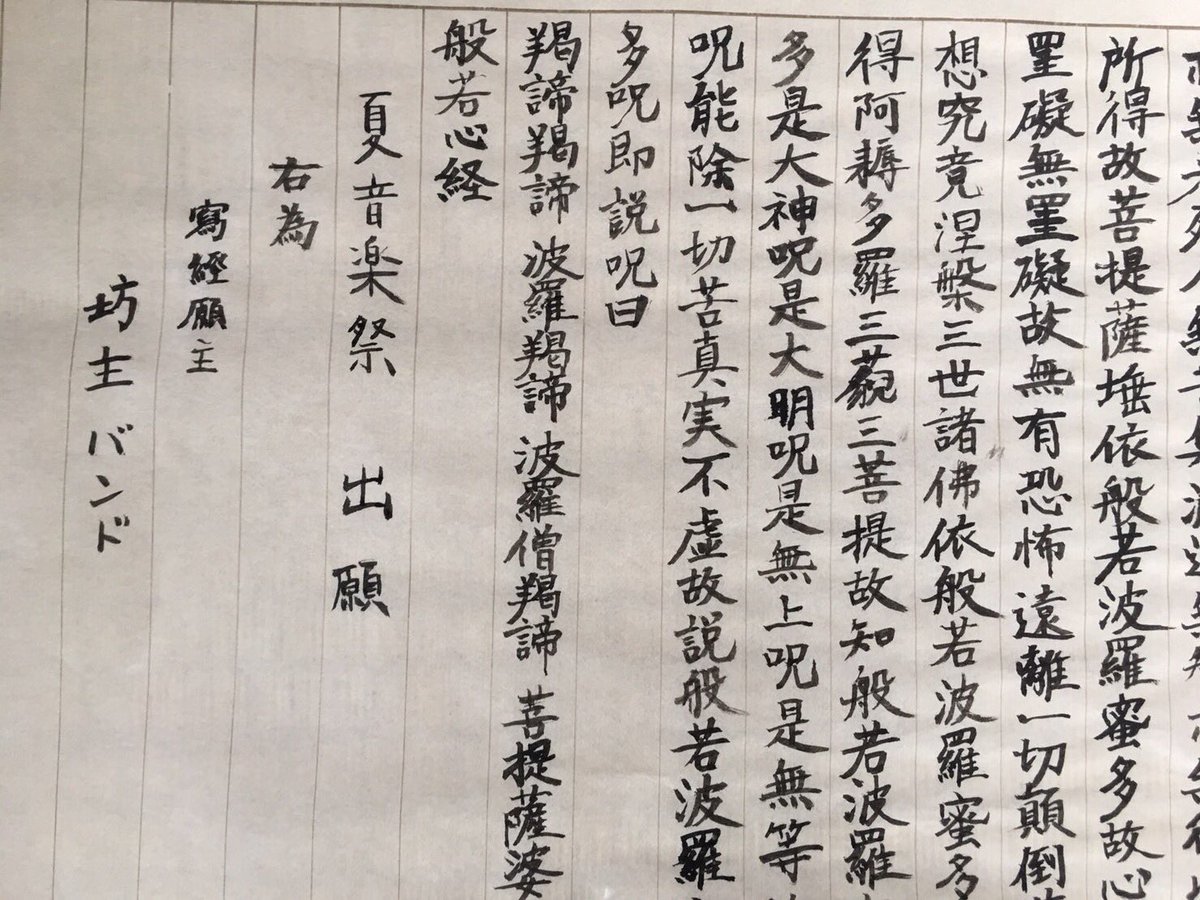 所得故菩提薩埵依般若波羅蜜多故心
罣礙無罣礙故無有恐怖遠離一切顛倒
想究竟涅槃三世諸佛依般若波羅蜜多
得阿耨多羅三藐三菩提故知般若波羅
多是大神呪是大明呪是無上呪是無等
呪能除一切苦真実不虚故説般若波羅
多呪即説呪曰
羯諦羯諦 波羅羯諦 波羅僧羯諦 菩提薩婆
般若心経
夏音楽祭 出願
右為
寫經願主
坊主バンド